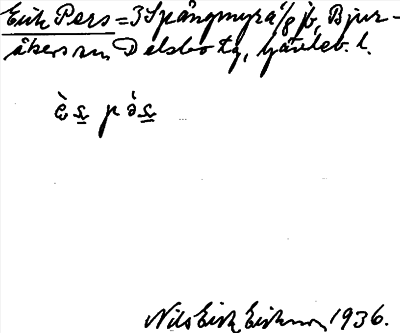 Erik Pers = 3 Spångmyra 1/8 jb, Bjur-
åkers sn, Delsbo tg, Gävleb. l.
Nils Erik Erikson 1936.